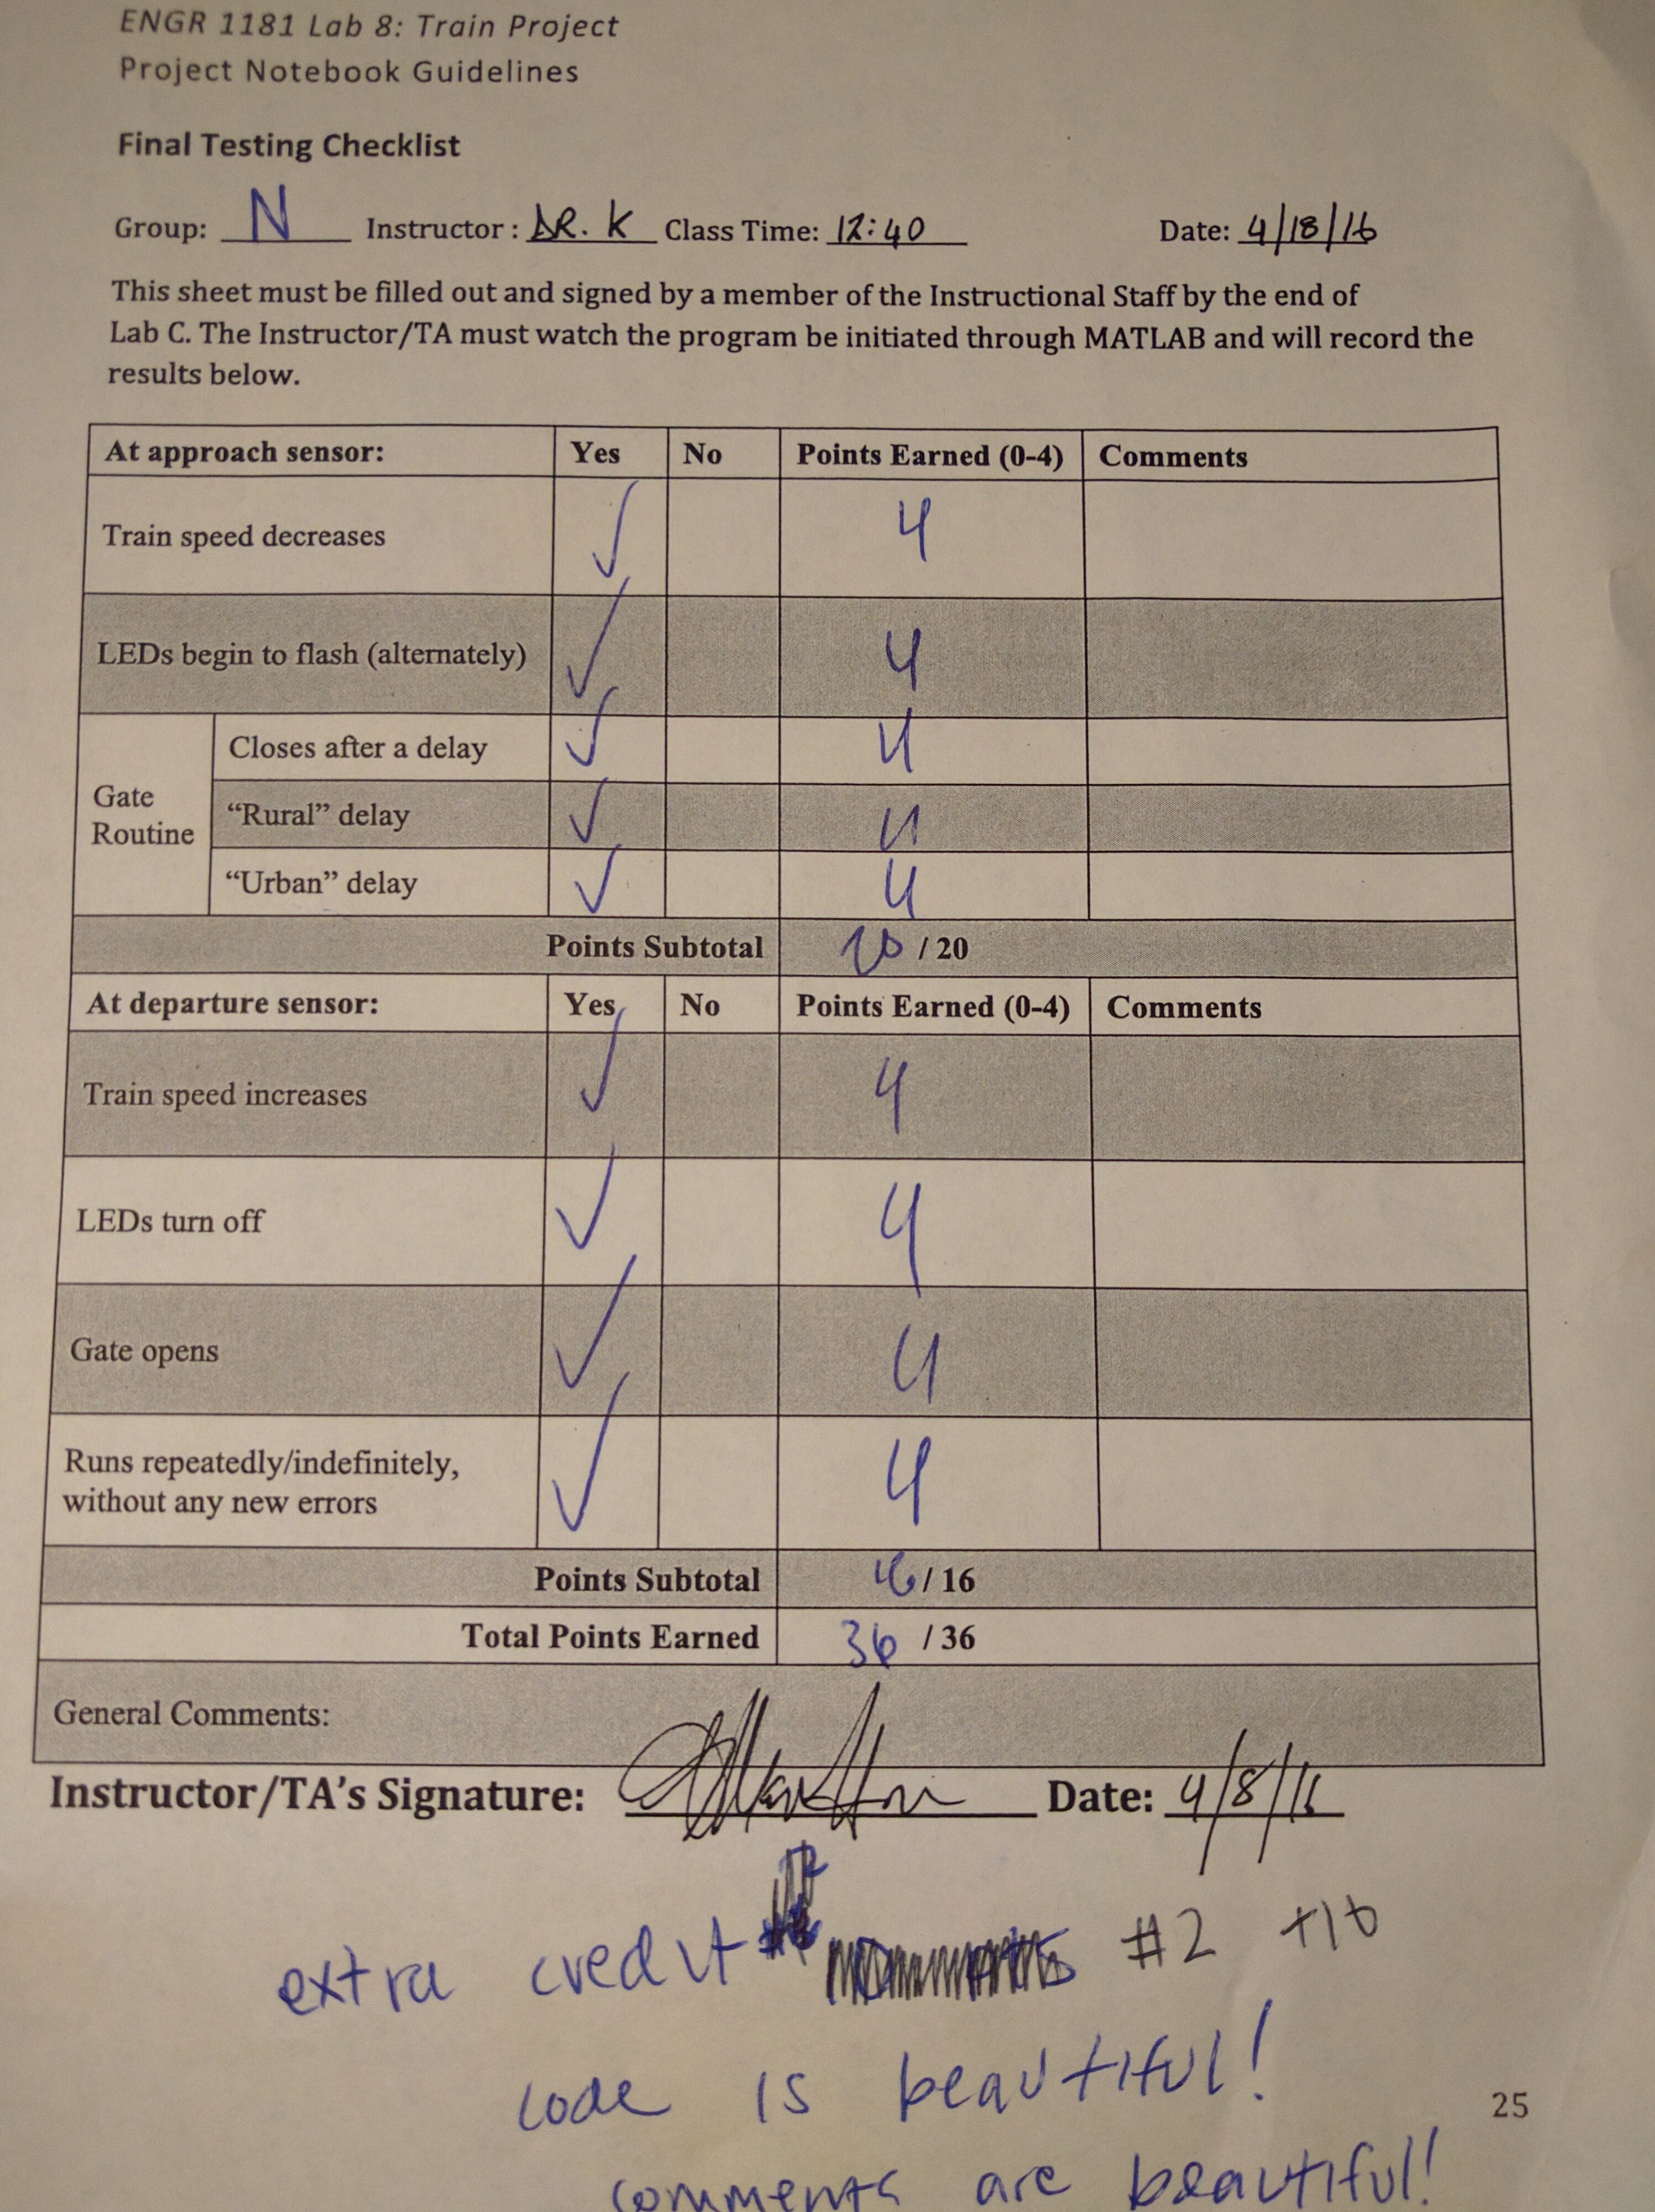 ENGR 1181 Lab 8: Train Project
Project Notebook Guidelines
Final Testing Checklist
Group: N Instructor: DR. K Class Time: 12:40 Date: 4/18/16
This sheet must be filled out and signed by a member of the Instructional Staff by the end of
Lab C. The Instructor/TA must watch the program be initiated through MATLAB and will record the
results below.
At approach sensor: Yes No Points Earned (0-4) Comments
Train speed decreases ✓ 4
LEDs begin to flash (alternately) ✓ 4
Gate Routine
Closes after a delay ✓ 4
“Rural” delay ✓ 4
“Urban” delay ✓ 4
Points Subtotal 20 / 20
At departure sensor: Yes No Points Earned (0-4) Comments
Train speed increases ✓ 4
LEDs turn off ✓ 4
Gate opens ✓ 4
Runs repeatedly/indefinitely,
without any new errors ✓ 4
Points Subtotal 16 / 16
Total Points Earned 36 / 36
General Comments:
Instructor/TA's Signature: Date: 4/8/16
extra credit #2 +10
code is beautiful!
25
comments are beautiful!